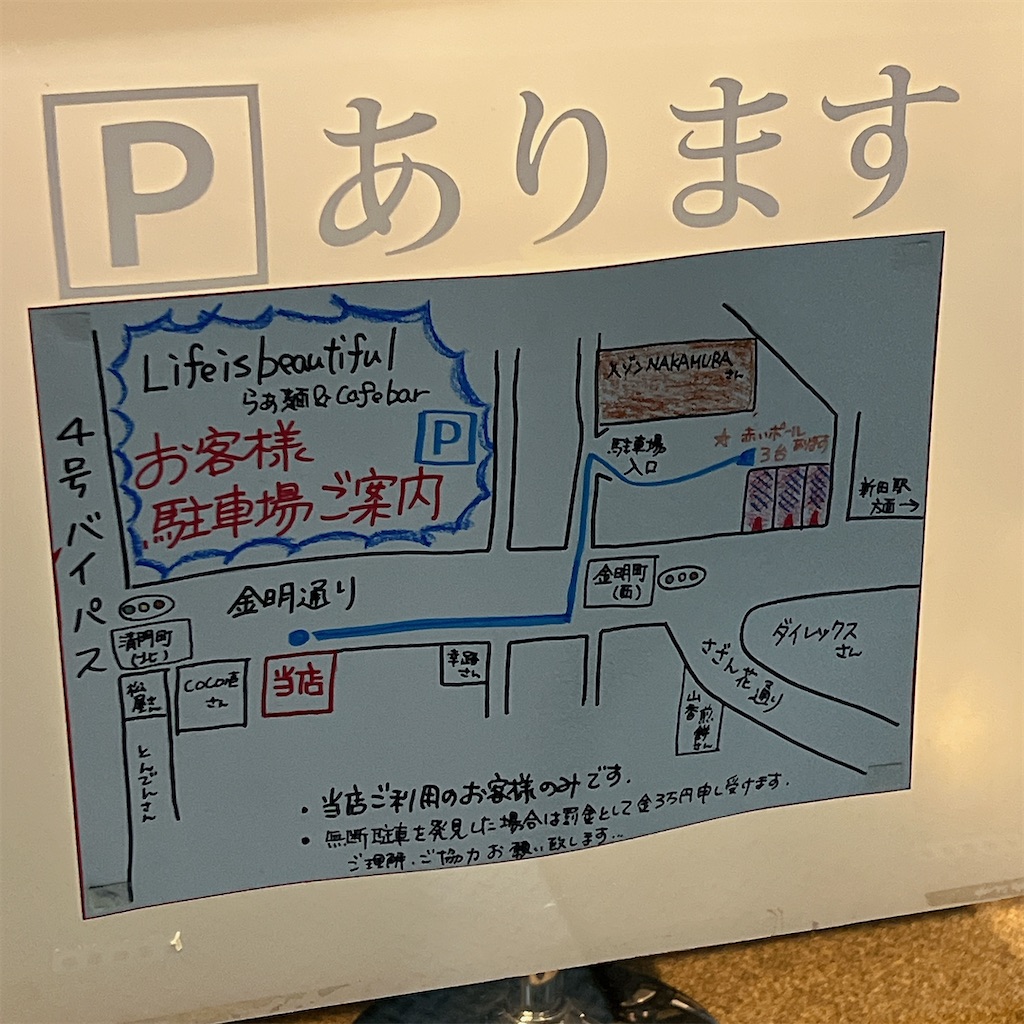 P あります
Life is beautiful
らぁ麺 & Cafe bar
お客様
P
駐車場ご案内
4号バイパス
メゾン NAKAMURA さん
駐車場
入口
☆ 赤いポール
3台 あります
新田駅
方面→
金明通り
金明町
(西)
清門町
(北)
松屋さん
COCO壱
さん
当店
幸路
さん
ダイレックス
さん
さざん花通り
山香煎餅さん
とんでんさん
・当店ご利用のお客様のみです.
・無断駐車を発見した場合は罰金として金3万円申し受けます.
ご理解、ご協力お願い致します…